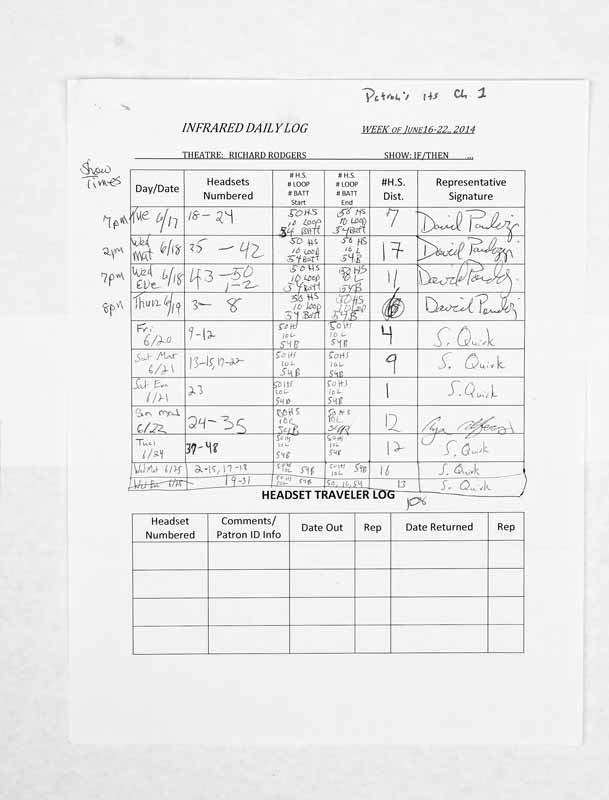 Patron's its Ch 1
INFRARED DAILY LOG WEEK OF JUNE16-22, 2014
THEATRE: RICHARD RODGERS SHOW: IF/THEN ...
Show Times
Day/Date Headsets Numbered # H.S. # LOOP # BATT Start # H.S. # LOOP # BATT End #H.S. Dist. Representative Signature
7pm Tue 6/17 18-24 50 HS 10 LOOP 54 BATT 50 HS 10 LOOP 54 BATT 7 David
2pm Wed Mat 6/18 25-42 50 HS 10 LOOP 54 BATT 50 HS 10 L 54 B 17 David
7pm Wed Eve 6/18 43-50 1-2 50 HS 10 LOOP 54 BATT 50 HS 10 L 54B 11 David
8pm Thurs 6/19 3-8 50 HS 10 LOOP 54 BATT 50 HS 10 LOOP 54 B 6 David
Fri 6/20 9-12 50 HS 10L 54B 50 HS 10L 54B 4 S. Quirk
Sat Mat 6/21 13-15, 17-22 50 HS 10L 54B 50HS 10L 54B 9 S. Quirk
Sat Eve 6/21 23 50 HS 10L 54B 50 HS 10L 54B 1 S. Quirk
Sun Mat 6/22 24-35 50HS 10L 54B 50 HS 10L 54B 12
Tues 6/24 37-48 50 HS 10L 54B 50 HS 10L 54B 12 S. Quirk
Wed Mat 6/25 2-15, 17-18 50HS 10L 54B 50 HS 10L 54B 16 S. Quirk
Wed Eve 6/25 19-31 50HS 10L 54B 50, 10, 54 13 S. Quirk
HEADSET TRAVELER LOG
108
Headset Numbered Comments/ Patron ID Info Date Out Rep Date Returned Rep